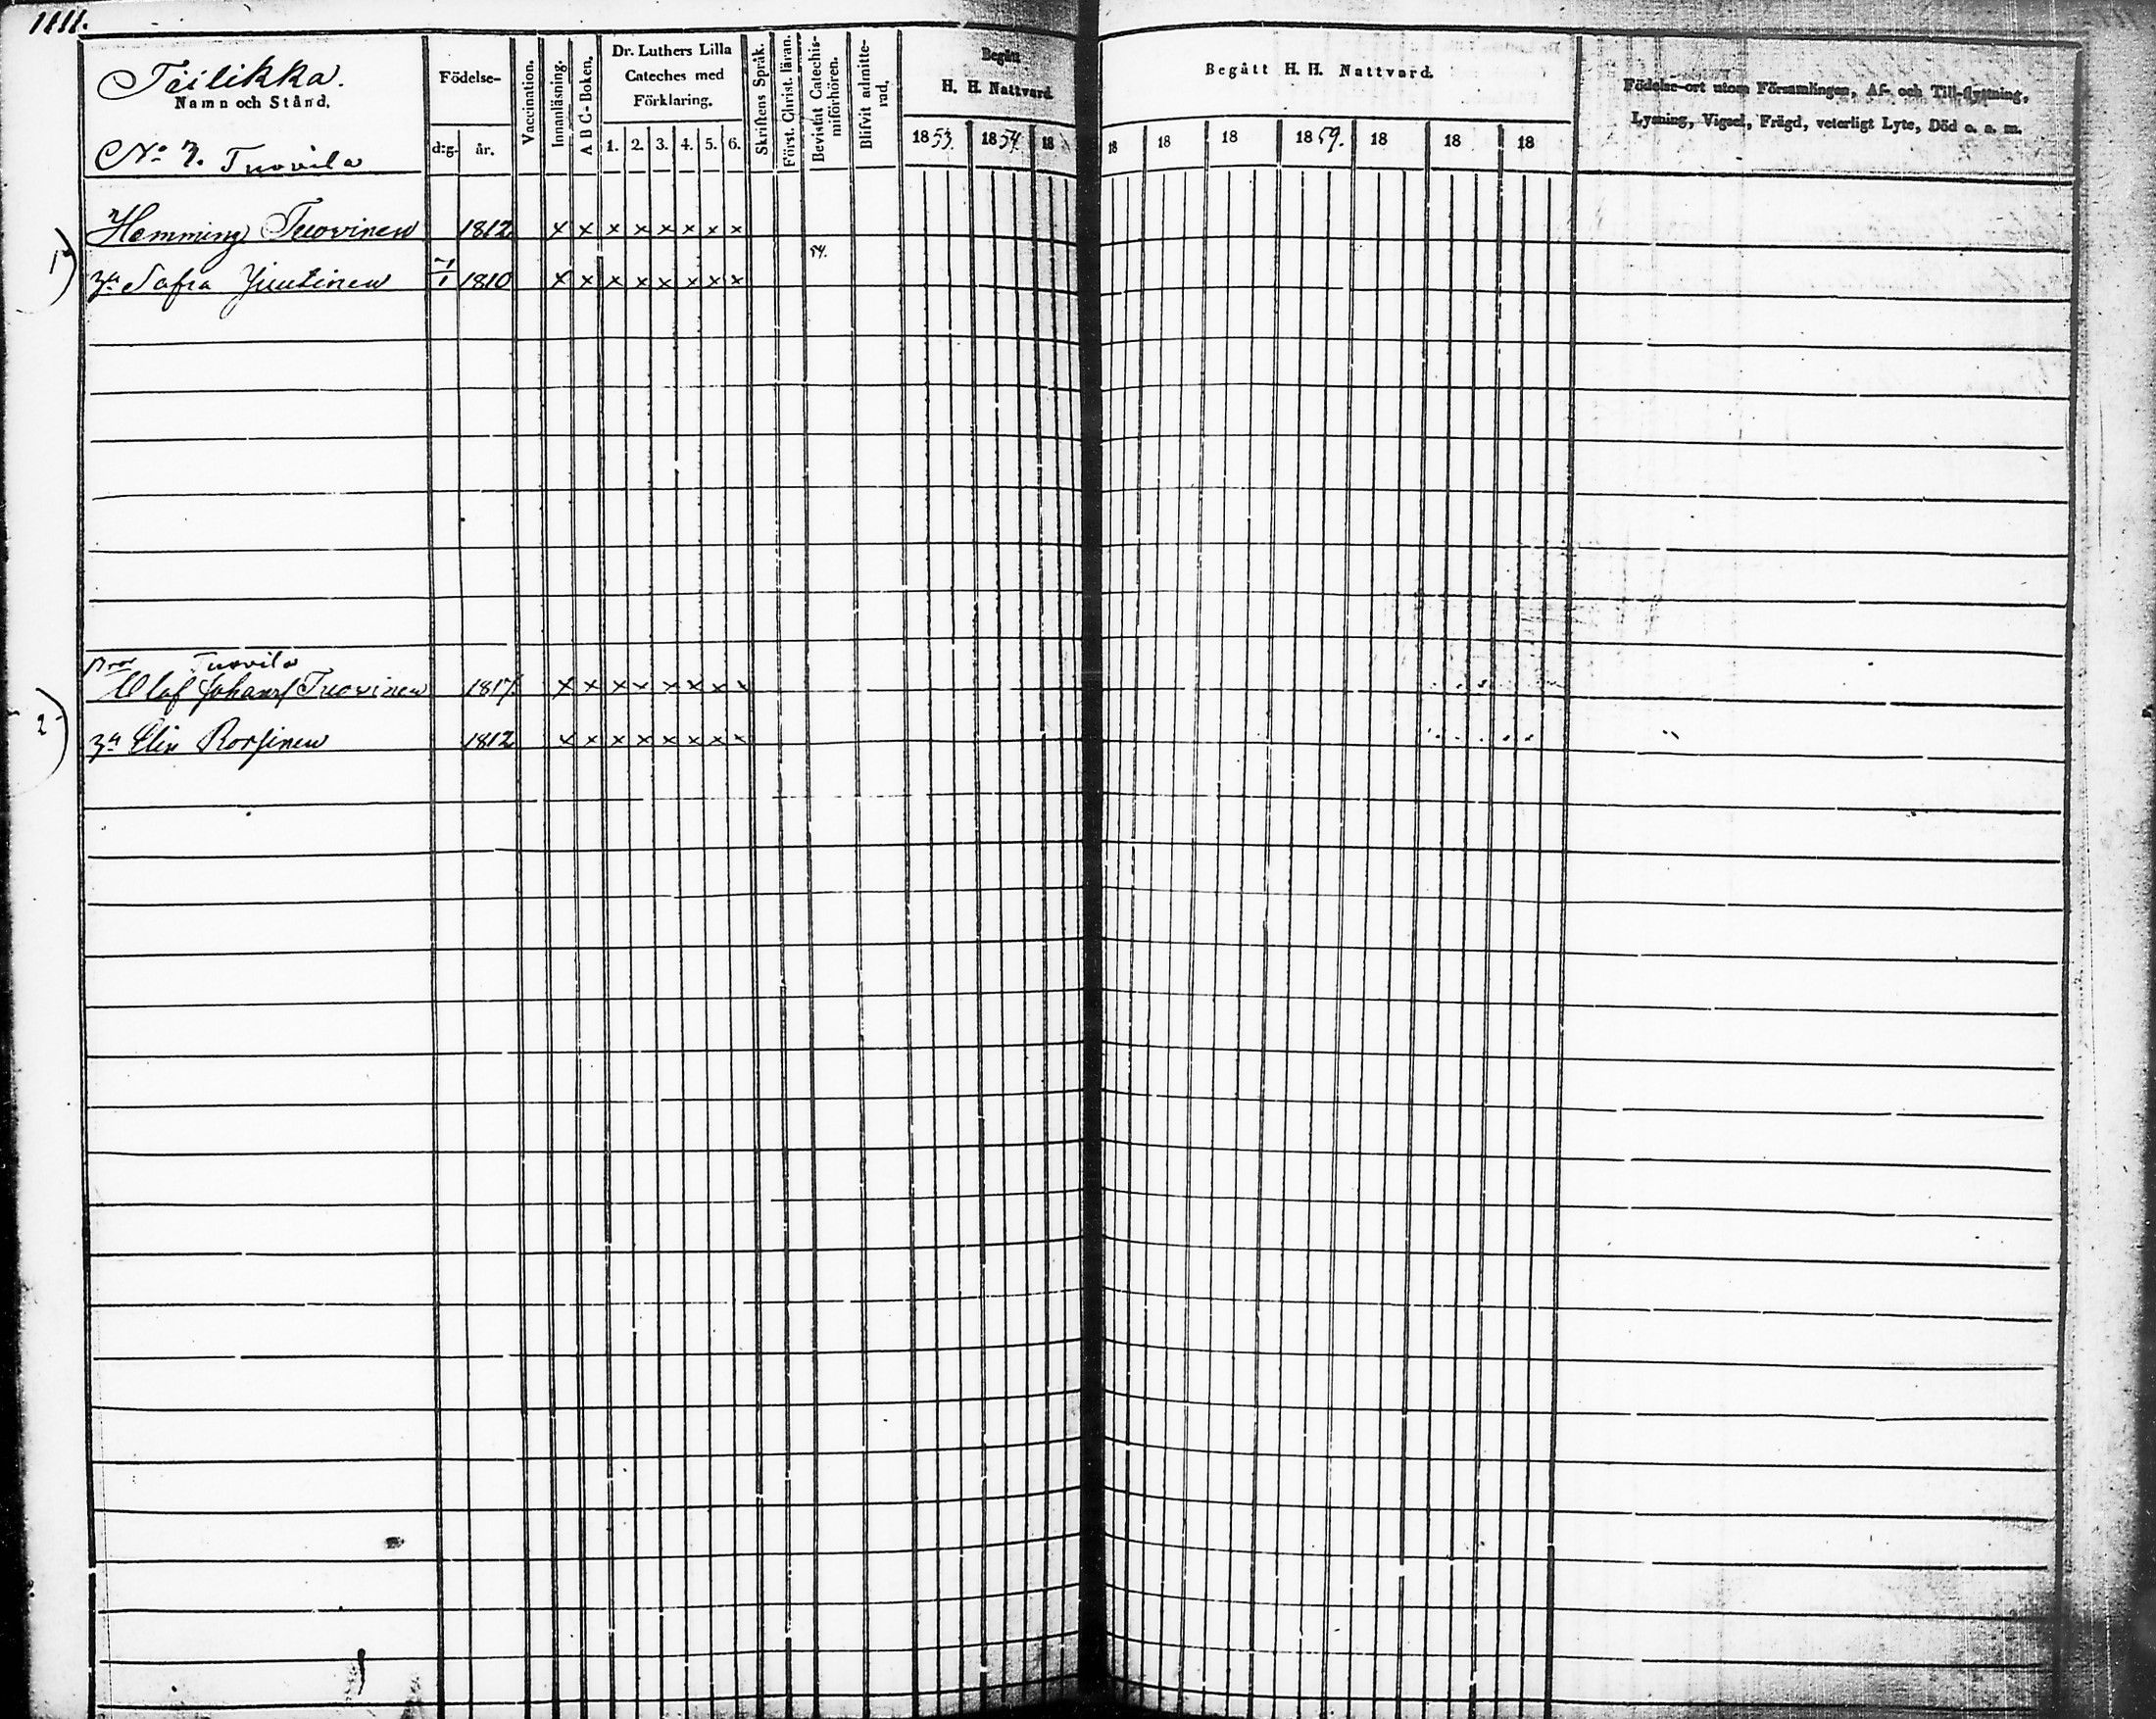 1111.
Teilikka.
Namn och Stånd.
No 7. Tuovila
Födelse-
d:g.
år.
Vaccination.
Innanläsning.
A B C-Boken.
Dr. Luthers Lilla
Cateches med
Förklaring.
1. 2. 3. 4. 5. 6.
Skriftens Språk.
Först. Christ. läran.
Bevistat Catechis-
miförhören.
Blifvit admitte-
rad.
Begått
H. H. Nattvard.
1853. 1854. 18
Begått H. H. Nattvard.
18 18 18 1859. 18 18 18
Födelse-ort utom Församlingen, Af- och Till-flyttning,
Lysning, Vigsel, Frägd, veterligt Lyte, Död o. a. m.
Hemming Tuovinen 1812 x x x x x x x x
54.
1)
Sofia Juutinen 1810 x x x x x x x x
Bror Tuovila
Olof Johans Tuovinen 1817 x x x x x x x x
2)
Elin Korhinen 1812 x x x x x x x x